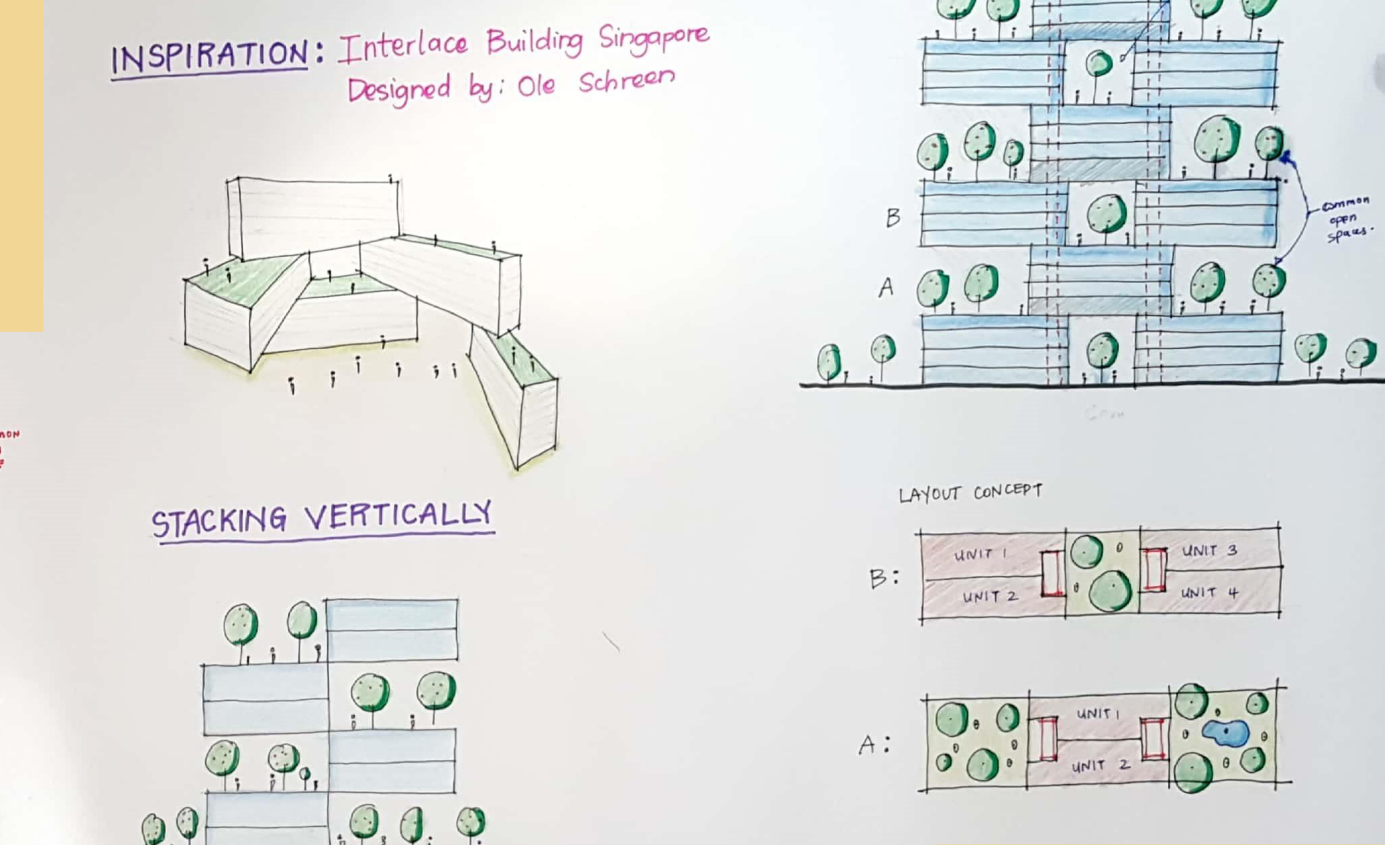 INSPIRATION: Interlace Building Singapore
Designed by: Ole Schreen
B
A
common
open
spaces.
STACKING VERTICALLY
LAYOUT CONCEPT
B:
UNIT 1
UNIT 2
UNIT 3
UNIT 4
A:
UNIT 1
UNIT 2